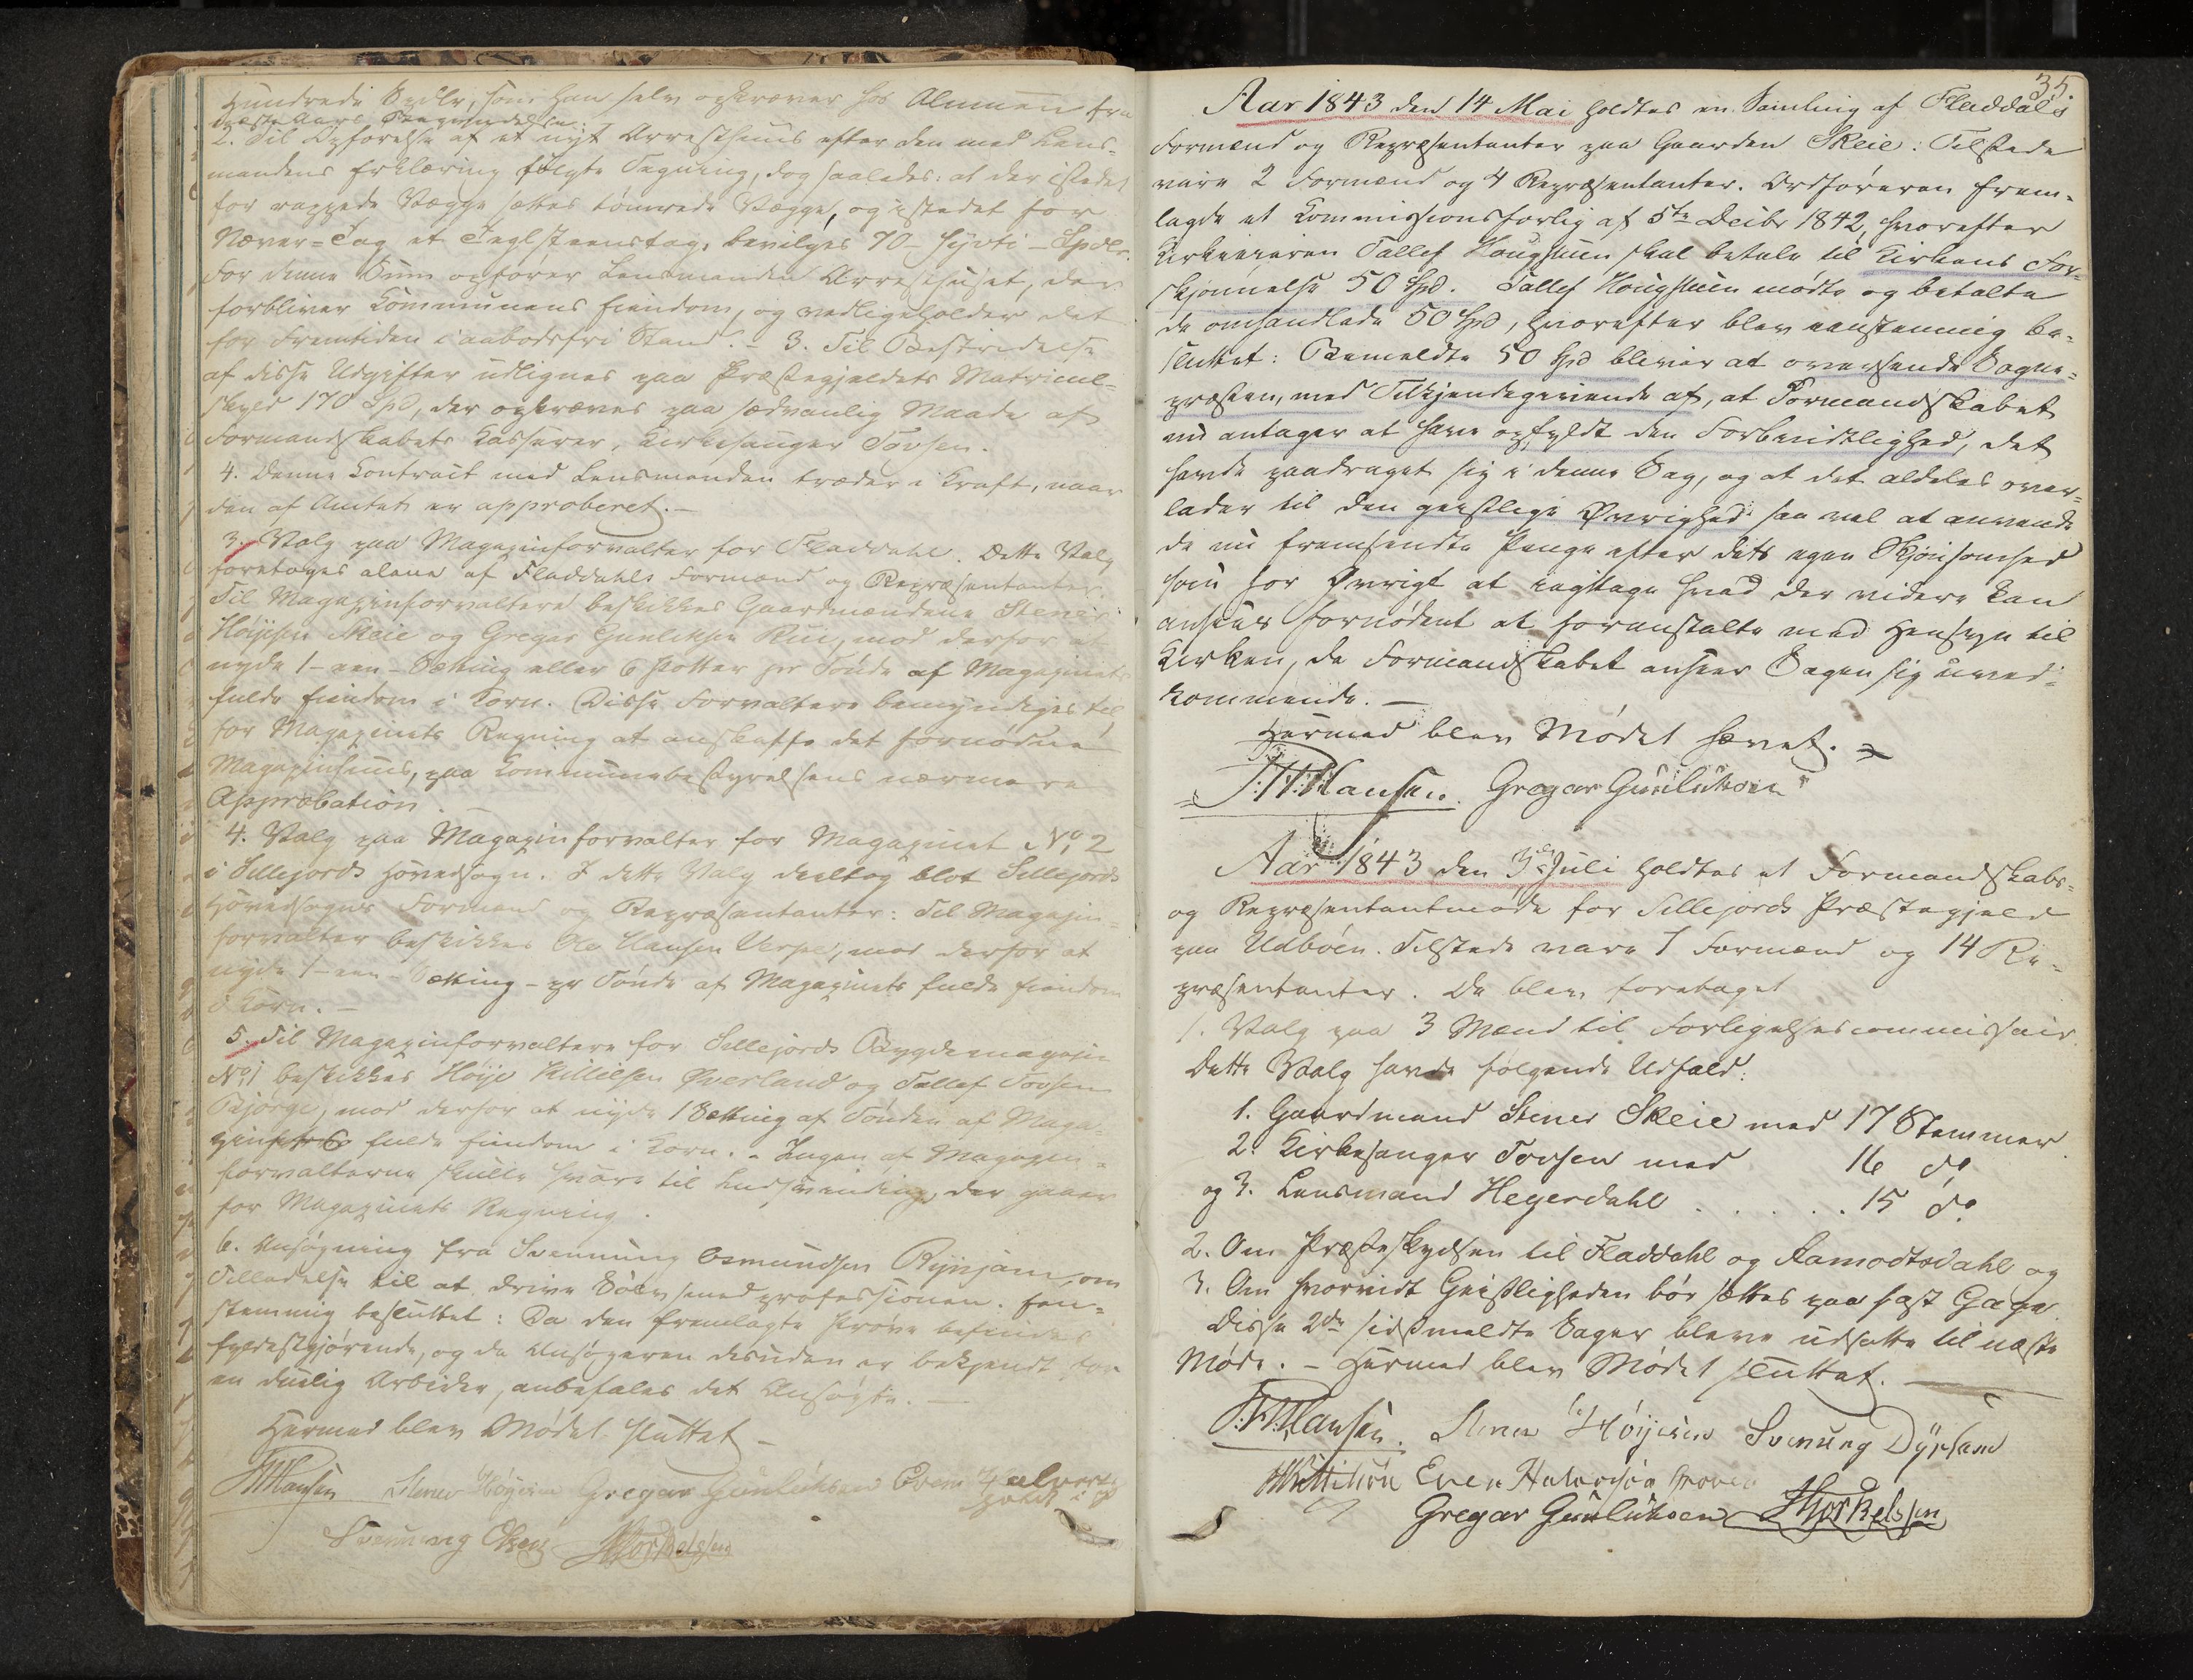 Hundrede Spdlr, som han selv opkræver hos Almuen fra
næste Aars Begyndelse.
2. Til Opførelse af et nyt Arresthuus efter den med Lens-
mandens Erklæring fulgte Tegning, dog saaledes: at der istedet
for rappede Vægge sættes tømrede Vægge, og istedet for
Næver-Tag et Teglsteenstag, bevilges 70 - syvti - Spdlr.
For denne Sum opfører Lensmanden Arresthuset, der
forbliver Communens Eiendom, og vedligeholder det
for Fremtiden i aabodsfri Stand. - 3. Til Bestridelse
af disse Udgifter udlignes paa Præstegjeldets Matricul-
skyld 170 Spd, der opkræves paa sædvanlig Maade af
Formandskabets Kasserer, Kirkesanger Tovsen.
4. Denne Contract med Lensmanden træder i Kraft, naar
den af Amtet er approberet. -
3. Valg paa Magazinforvalter for Fladdahl. Dette Valg
foretoges alene af Fladdahls Formænd og Repræsentanter.
Til Magazinforvaltere beskikkes Gaardmændene Stener
Høijesen Skeie og Gregar Gunleiksen Rui, mod derfor at
nyde 1 - een - Sætting eller 6 Potter pr Tønde af Magazinets
fulde Eiendom i Korn. Disse Forvaltere bemyndiges til
for Magazinets Regning at anskaffe det fornødne
Magazinhuus, paa Kommunebestyrelsens nærmere
Approbation.
4. Valg paa Magazinforvalter for Magazinet No 2
i Sillejords Hovedsogn. I dette Valg deeltog blot Sillejords
Hovedsogns Formænd og Repræsentanter: Til Magazin-
forvalter beskikkes Ole Hansen Verpe, mod derfor at
nyde 1 - een - Sætting - pr Tønde af Magazinets fulde Eiendom
i Korn. -
5. Til Magazinforvaltere for Sillejords Bygdemagazin
No 1 beskikkes Høije Killeksen Øverland og Tallef Tovsen
Bjørge, mod derfor at nyde 1 Sætting af Tønden af Maga-
zinets fulde Eiendom i Korn. - Ingen af Magazin-
forvalterne skulle svare til Indsvinding, der gaaer
for Magazinets Regning.
6. Ansøgning fra Svennung Osmundsen Rynjam, om
Tilladelse til at drive Sølvsmedprofessionen. Een-
stemmig besluttet: Da den fremlagte Prøve befindes
fyldestgjørende, og da Ansøgeren desuden er bekjendt for
en duelig Arbeider, anbefales det Ansøgte. -
Hermed blev Mødet sluttet -
Hansen Stener Høijesen Gregar Gunleiksen Even Halvors
Svennung Olsen HTorkelssen
35.
Aar 1843 den 14 Mai holdtes en Samling af Fladdal's
Formænd og Repræsentanter paa Gaarden Skeie: Tilstede
vare 2 Formænd og 4 Repræsentanter. Ordføreren frem-
lagde et Kommissionsforlig af 5te Decbr 1842, hvorefter
Kirkeeieren Tallef Haugstuen skal betale til Kirkens For-
skjønnelse 50 Spd. Tallef Haugstuen mødte og betalte
de omhandlede 50 Spd, hvorefter blev eenstemmig be-
sluttet: Bemeldte 50 Spd bliver at oversende Sogne-
præsten, med Tilkjendegivende af, at Formandskabet
nu antager at have opfyldt den Forbindtlighed, det
havde paadraget sig i denne Sag, og at det aldeles over-
lader til den geistlige Øvrighed saa vel at anvende
de nu fremsendte Penge efter dets egen Skjønsomhed
som for Øvrigt at iagttage hvad der videre kan
ansees fornødent at foranstalte med Hensyn til
Kirken, da Formandskabet anseer Sagen sig uved-
kommende. -
Hermed blev Mødet hævet.
Hansen. Gregar Gunleiksen
Aar 1843 den 3die Juli holdtes et Formandskabs-
og Repræsentantmøde for Sillejords Præstegjeld
paa Udbøen. Tilstede vare 7 Formænd og 14 Re-
præsentanter. Da blev foretaget
1. Valg paa 3 Mænd til Forligelsescommissair.
Dette Valg havde følgende Udfald:
1. Gaardmand Stener Skeie med 17 Stemmer
2. Kirkesanger Tovsen med 16 do
og 3. Lensmand Hegerdahl . . . . . 15 do
2. Om Præsteskydsen til Fladdahl og Aamodtsdahl og
3. Om hvorvidt Geistligheden bør sættes paa fast Gage.
Disse 2de sidstmeldte Sager bleve udsatte til næste
Møde. - Hermed blev Mødet sluttet.
Hansen. Stener Høijesen Svenung Dyrland
Even Halvorsøn
Gregar Gunleiksen HTorkelssen